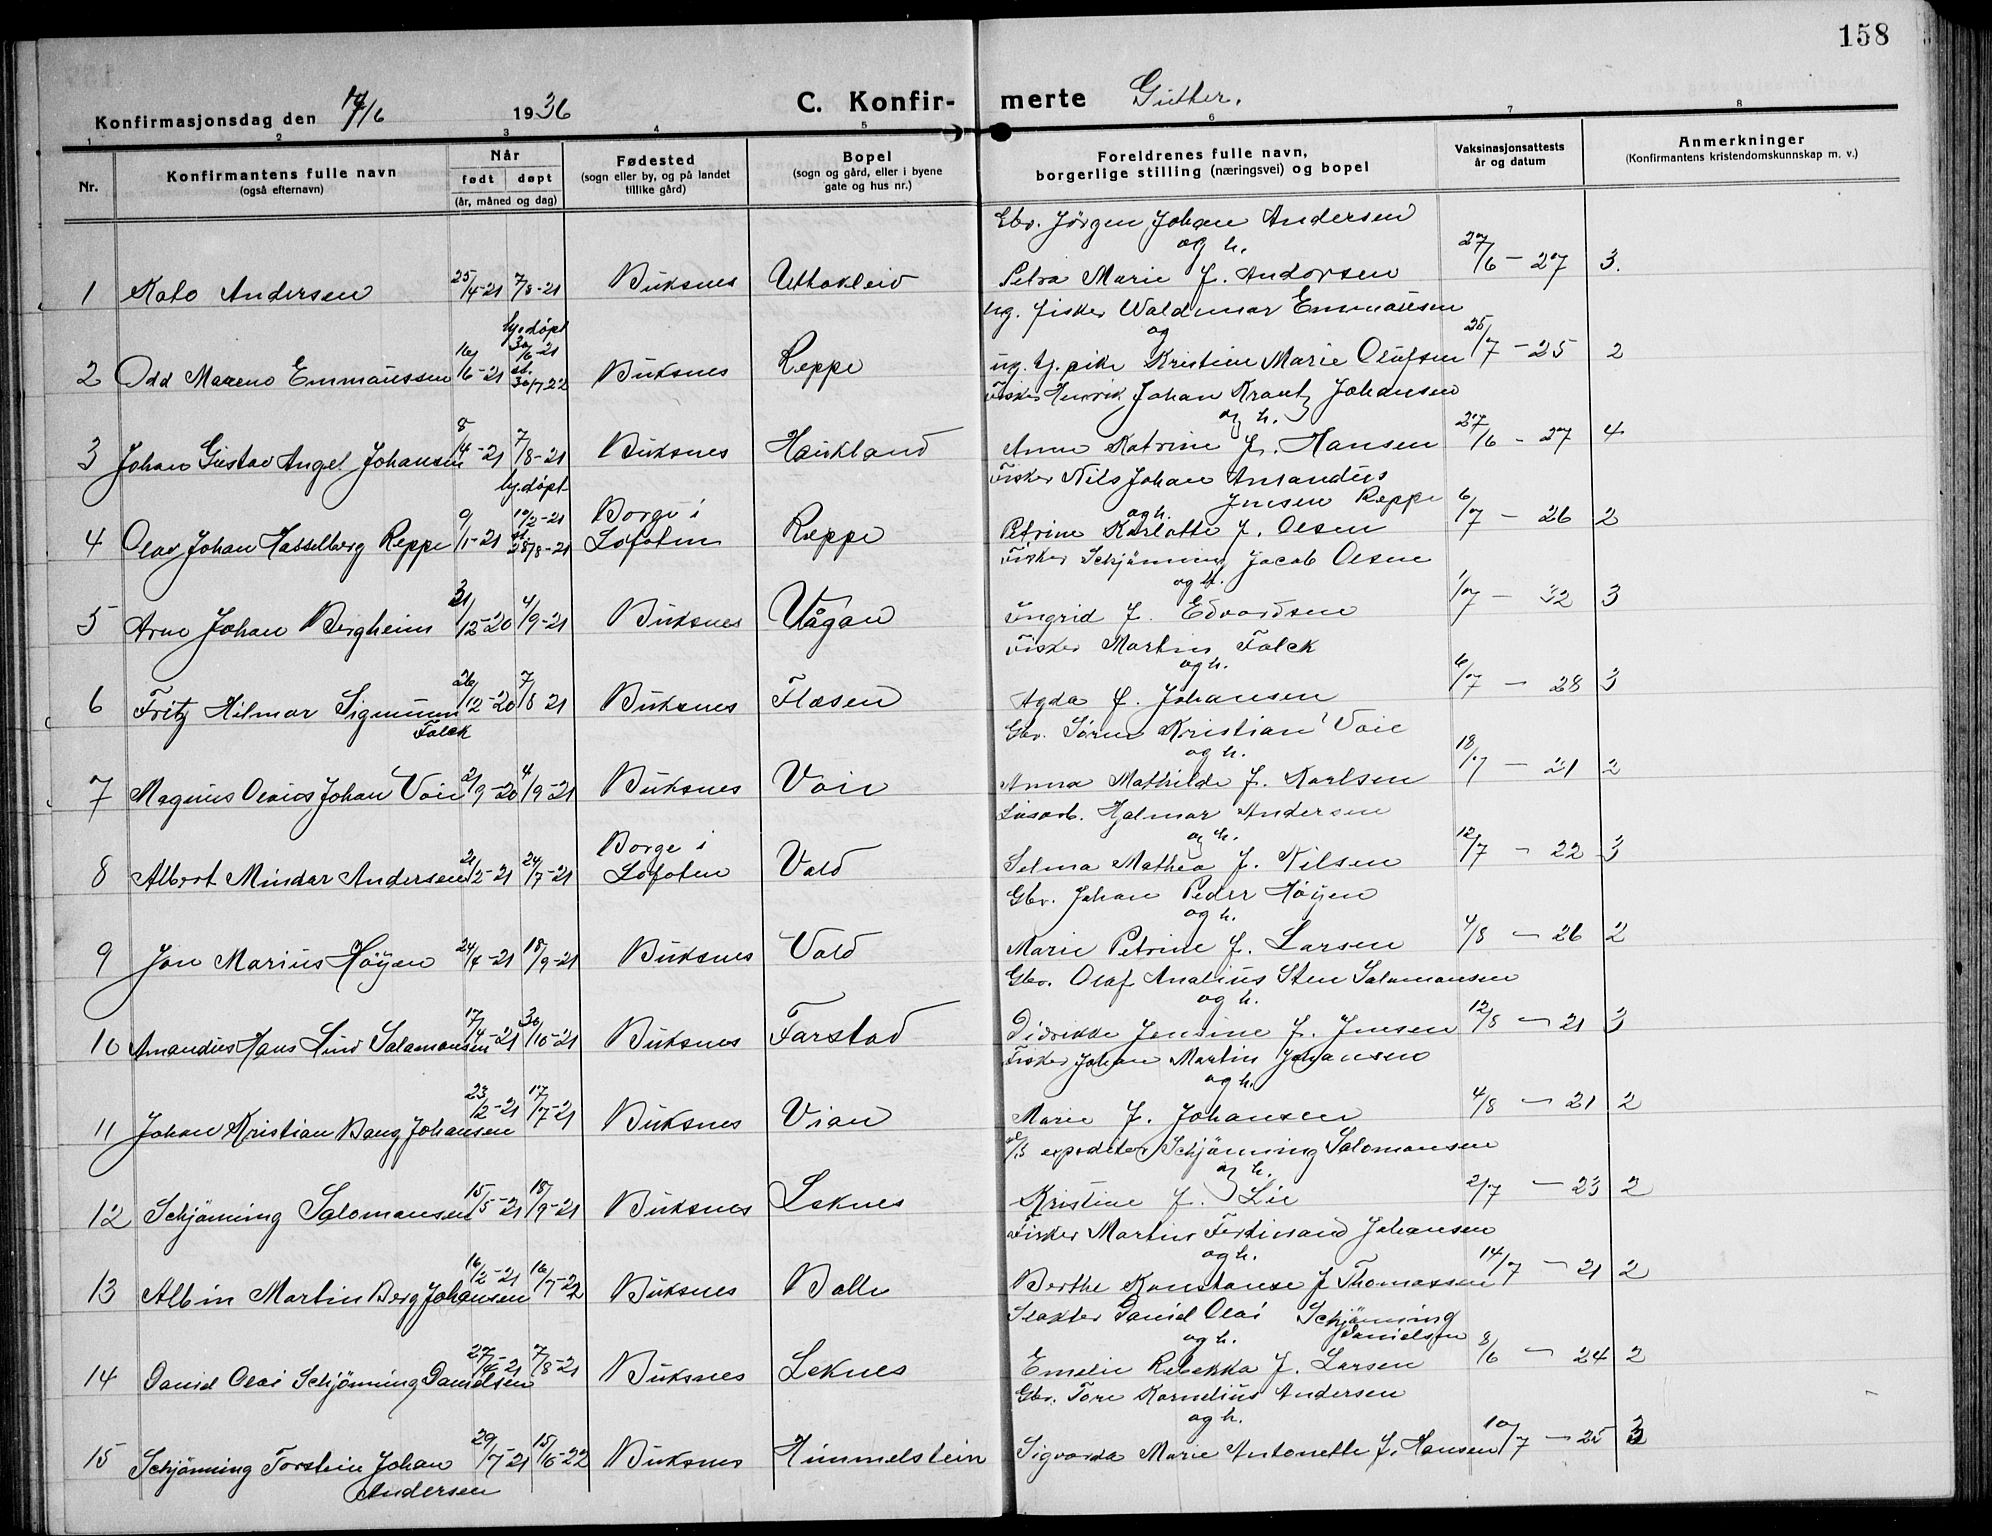 158
Konfirmasjonsdag den 14/6 1936 C. Konfir- merte Gutter.
1 2 3 4 5 6 7 8
Nr. Konfirmantens fulle navn (også efternavn) Når født døpt (år, måned og dag) Fødested (sogn eller by, og på landet tillike gård) Bopel (sogn og gård, eller i byene gate og hus nr.) Foreldrenes fulle navn, borgerlige stilling (næringsvei) og bopel Vaksinasjonsattests år og datum Anmerkninger (Konfirmantens kristendomskunnskap m. v.)
Gbr. Jörgen Johan Andersen
og h.
1 Kato Andersen 25/4-21 7/8-21 Buksnes Uttakleiv Petra Marie f. Andorsen 27/6 - 27 3.
ug. fisker Waldemar Emmausen
og
2 Odd Mareno Emmaussen 16/6-21 hj.døpt 30/6-21 st. 30/7 22 Buksnes Reppe ug. tj. pike Kristine Marie Olufsen 25/7 - 25 2
Fisker Henrik Johan Krantz Johansen
og h.
3 Johan Gustav Angel Johansen 8/4-21 7/8-21 Buksnes Haukland Anna Katrine f. Hansen 27/6 - 27 4
Fisker Nils Johan Amandus
Jensen Reppe
og h.
4 Olav Johan Hasselberg Reppe 9/1-21 hj.døpt 10/2-21 st. 28/8-21 Borge i Lofoten Reppe Petrine Karlotte f. Olsen 6/7 - 26 2
Fisker Schjönning Jacob Olsen
og h.
5 Arne Johan Bergheim 31/12-20 4/9-21 Buksnes Vågan Ingrid f. Edvardsen 1/7 - 32 3
Fisker Martin Falck
og h.
6 Fritz Hilmar Sigmunn Falck 26/12-20 7/8 21 Buksnes Flæsen Agda f. Johansen 6/7 - 28 3
Gbr. Sören Kristian Voie
og h.
7 Magnus Olaus Johan Voie 2/9-20 4/9-21 Buksnes Voie Anna Mathilde f. Karlsen 18/7 - 21 2
Løsarb. Hjalmar Andersen
og h.
8 Albert Mindar Andersen 21/2-21 24/7-21 Borge i Lofoten Vold Selma Mathea f. Nilsen 12/7 - 22 3
Gbr. Johan Peder Höyen
og h.
9 Jon Marius Höyen 24/4-21 18/9-21 Buksnes Vold Marie Petrine f. Larsen 4/8 - 26 2
Gbr. Olaf Analius Sten Salomonsen
og h.
10 Amandus Hans Lind Salamonsen 17/4-21 30/10-21 Buksnes Farstad Didrikke Jensine f. Jensen 12/8 - 21 3
Fisker Johan Martin Johansen
og h.
11 Johan Kristian Bang Johansen 23/2-21 17/7-21 Buksnes Vian Marie f. Johansen 4/8 - 21 2
expeditør Schjönning Salomonsen
og h.
12 Schjönning Salomonsen 15/5-21 18/9-21 Buksnes Leknes Kristine f. Lie 2/7 - 23 2
Fisker Martin Ferdinand Johansen
og h.
13 Albin Martin Berg Johansen 16/2-21 16/7-22 Buksnes Bolle Berthe Konstanse f Thomassen 14/7 - 21 2
Slakter Daniel Olai Schjönning
Danielsen
og h.
14 Daniel Olai Schjönning Danielsen 27/4-21 7/8-21 Buksnes Leknes Emelie Rebekka f. Larsen 8/6 - 24 2
Gbr. Tore Kornelius Andersen
og h.
15 Schjönning Torstein Johan Andersen 29/7-21 15/10-22 Buksnes Himmelstein Sigvarda Marie Antonette f. Hansen 10/7 - 25 3